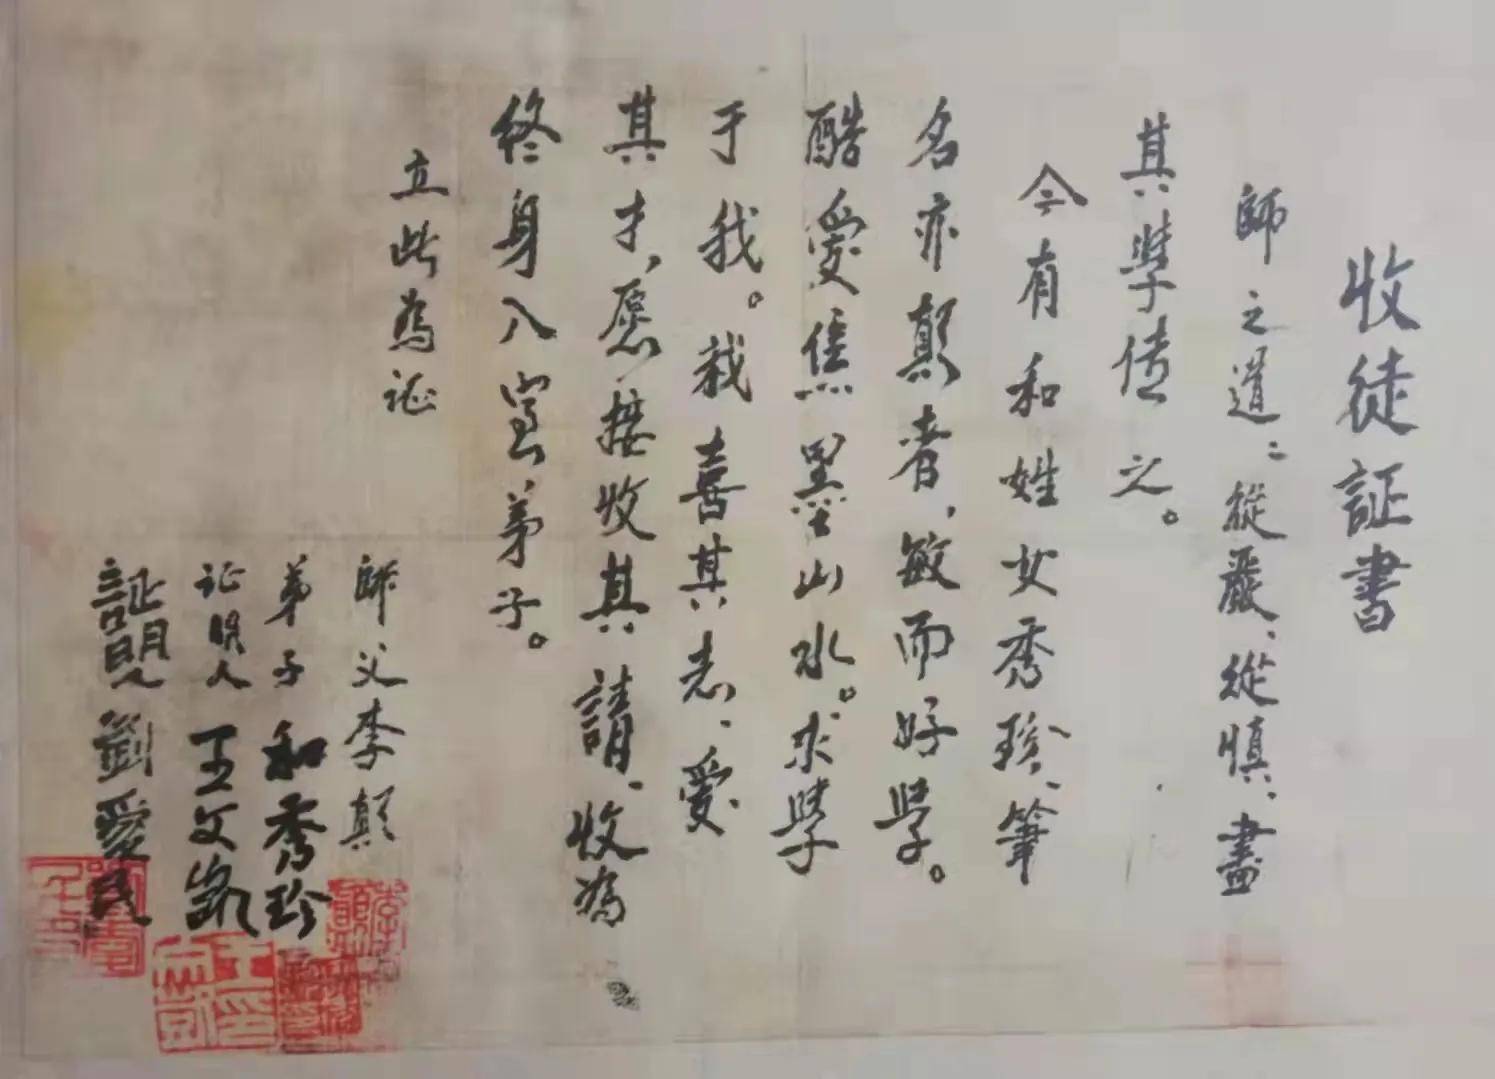 收徒証書
師之道：從嚴、從慎、盡
其學传之。
今有和姓女秀珍、筆
名亦顛者，敏而好学。
酷愛焦墨山水。求学
于我。我喜其志、愛
其才，愿接收其請、收為
终身入室弟子。
立此為证
師父李顛
弟子和秀珍
证明人王文凯
証明人劉愛民